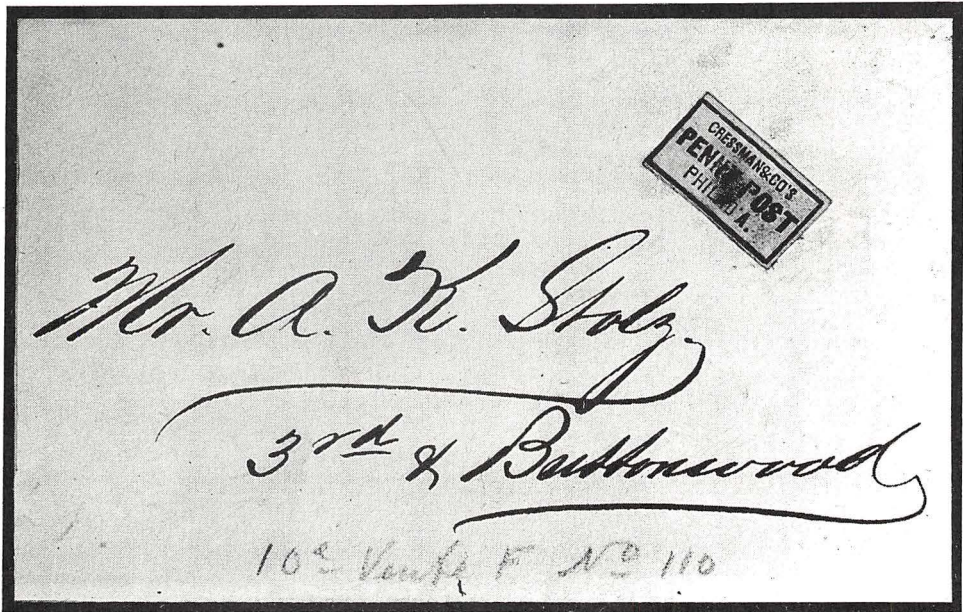 CRESSMAN & CO'S
PENNY POST
PHILAD'A.
Mr. A. K. Stolz
3rd & Buttonwood
10e Vente F No 110